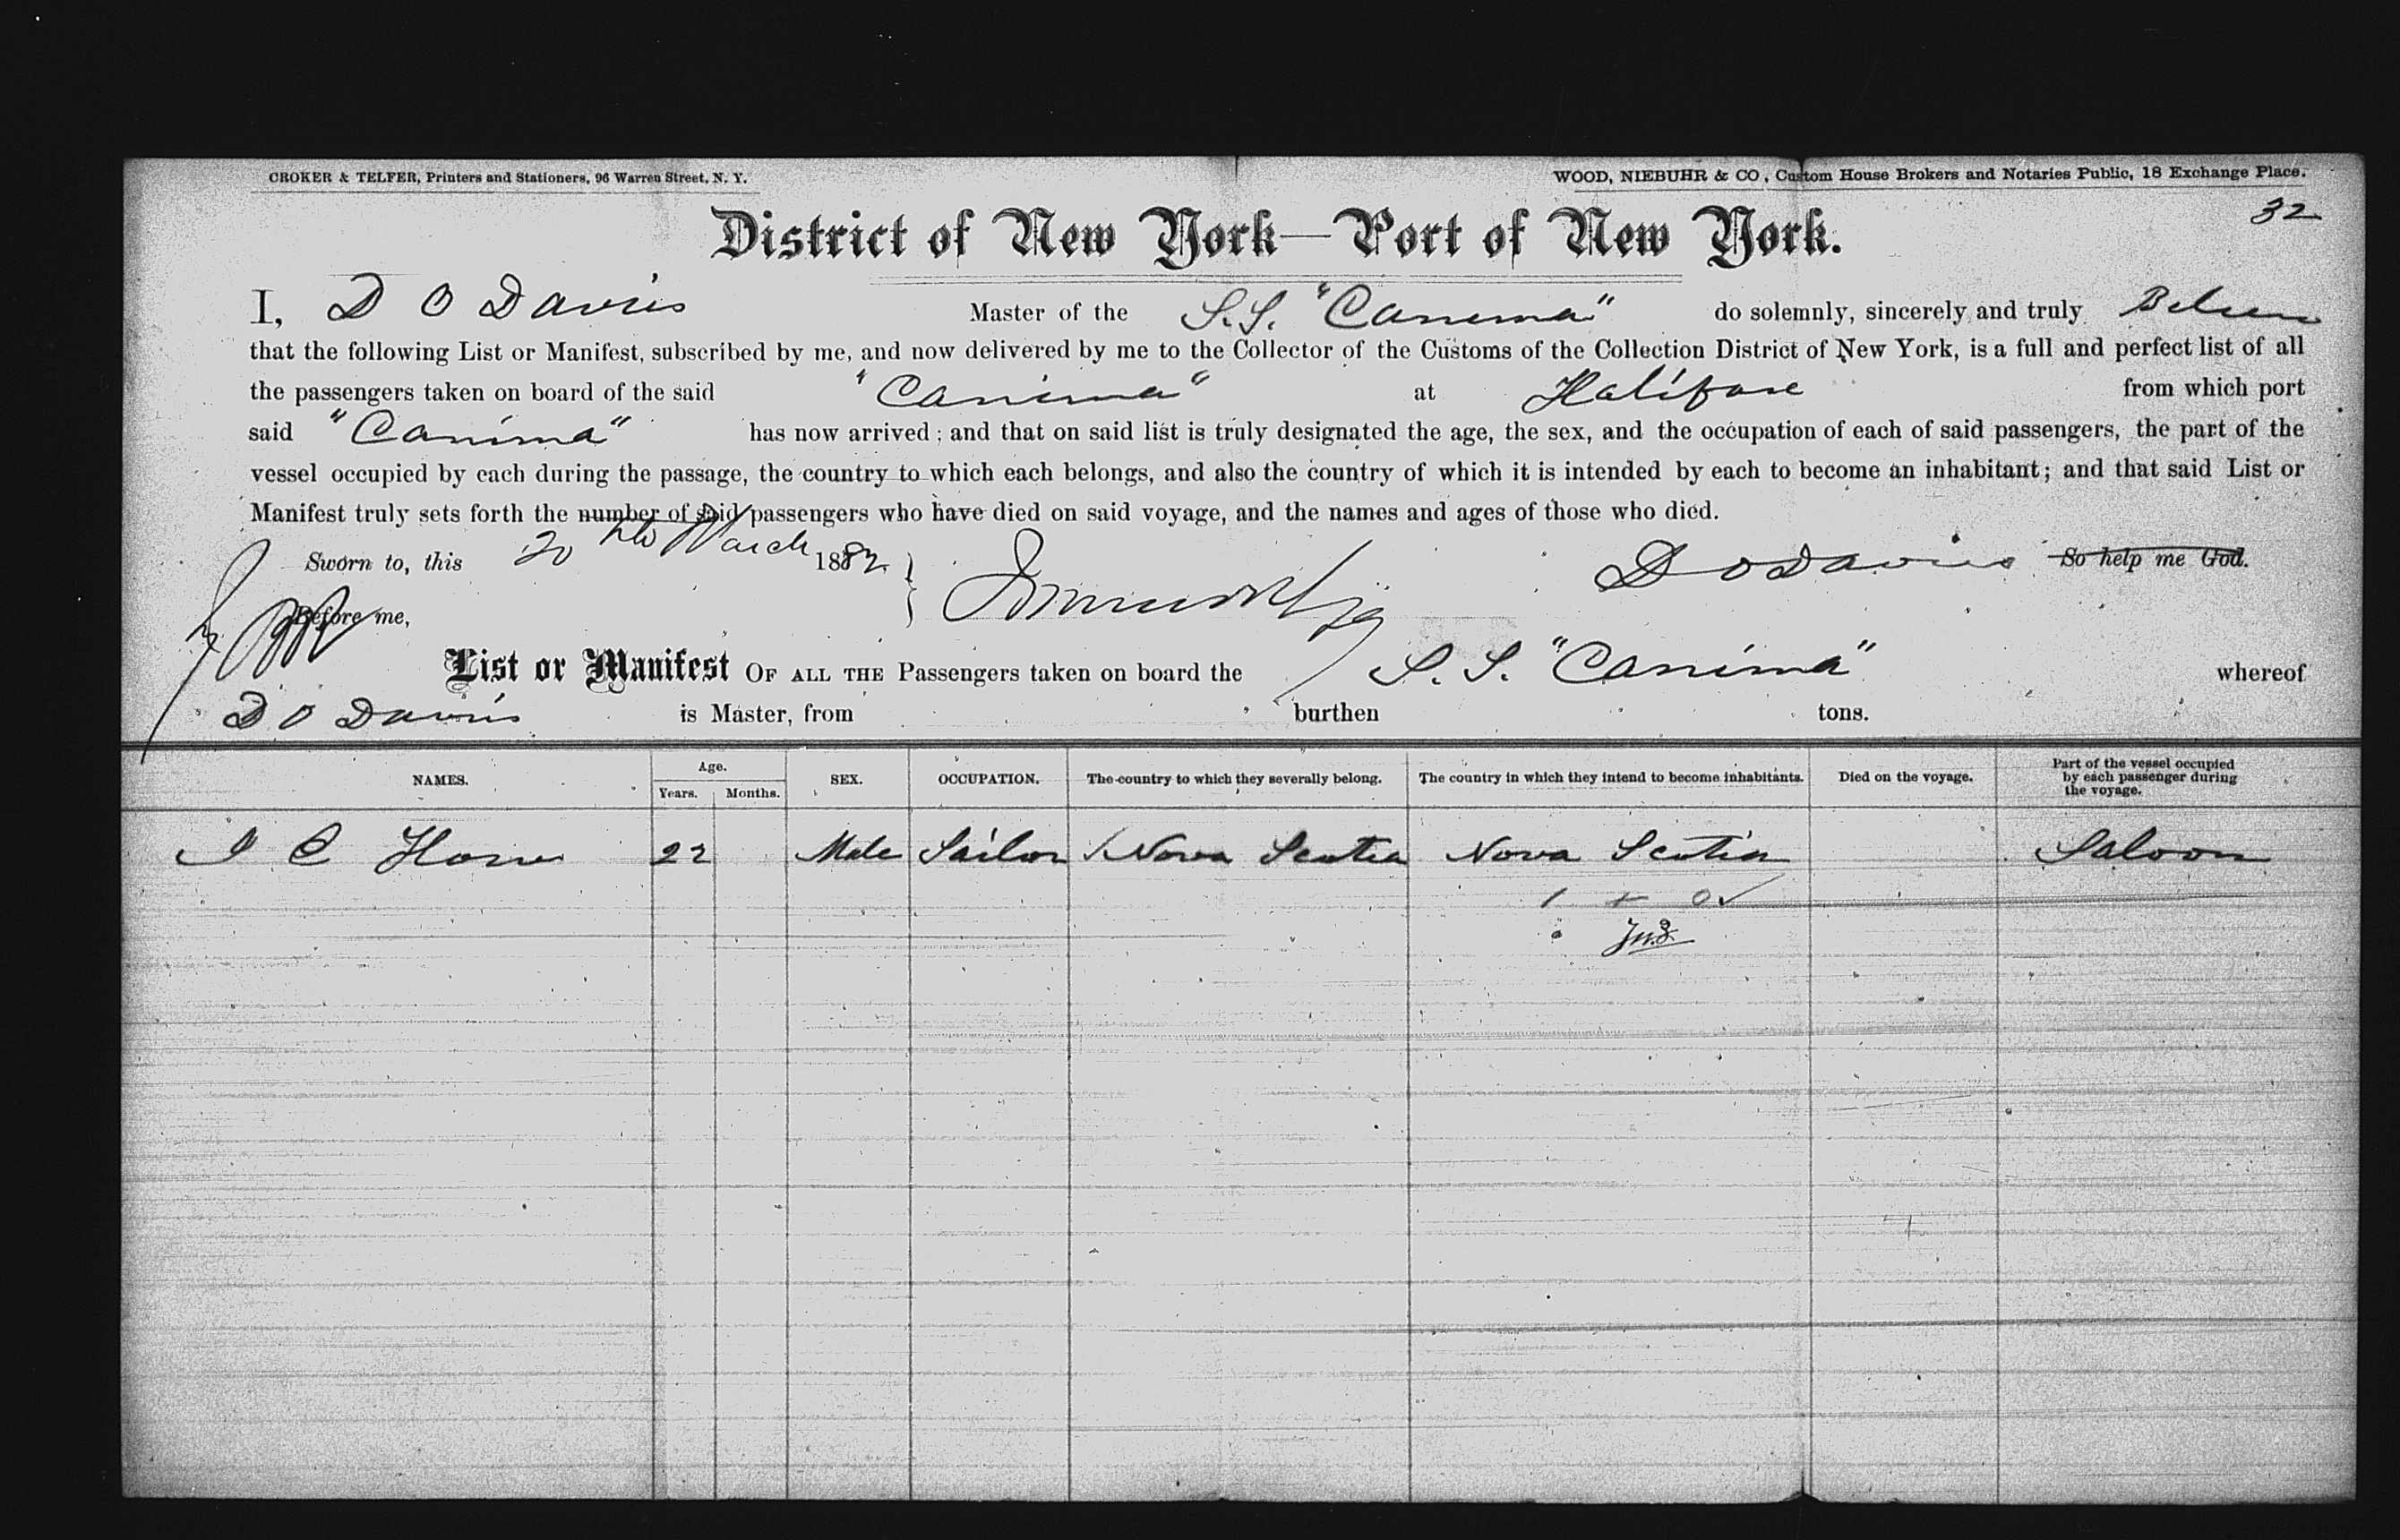 CROKER & TELFER, Printers and Stationers, 96 Warren Street, N. Y.
WOOD, NIEBUHR & CO., Custom House Brokers and Notaries Public, 18 Exchange Place.
32
District of New York—Port of New York.
I, D O Davies Master of the S.S. "Canima" do solemnly, sincerely and truly
that the following List or Manifest, subscribed by me, and now delivered by me to the Collector of the Customs of the Collection District of New York, is a full and perfect list of all
the passengers taken on board of the said "Canima" at Halifax from which port
said "Canima" has now arrived; and that on said list is truly designated the age, the sex, and the occupation of each of said passengers, the part of the
vessel occupied by each during the passage, the country to which each belongs, and also the country of which it is intended by each to become an inhabitant; and that said List or
Manifest truly sets forth the number of said passengers who have died on said voyage, and the names and ages of those who died.
Sworn to, this 20 March 1882 D O Davies So help me God.
Before me,
List or Manifest OF ALL THE Passengers taken on board the S. S. "Canima" whereof
D O Davies is Master, from burthen tons.
NAMES. Age. Years. Months. SEX. OCCUPATION. The country to which they severally belong. The country in which they intend to become inhabitants. Died on the voyage. Part of the vessel occupied by each passenger during the voyage.
22 Male Sailor Nova Scotia Nova Scotia Saloon
1 + 0